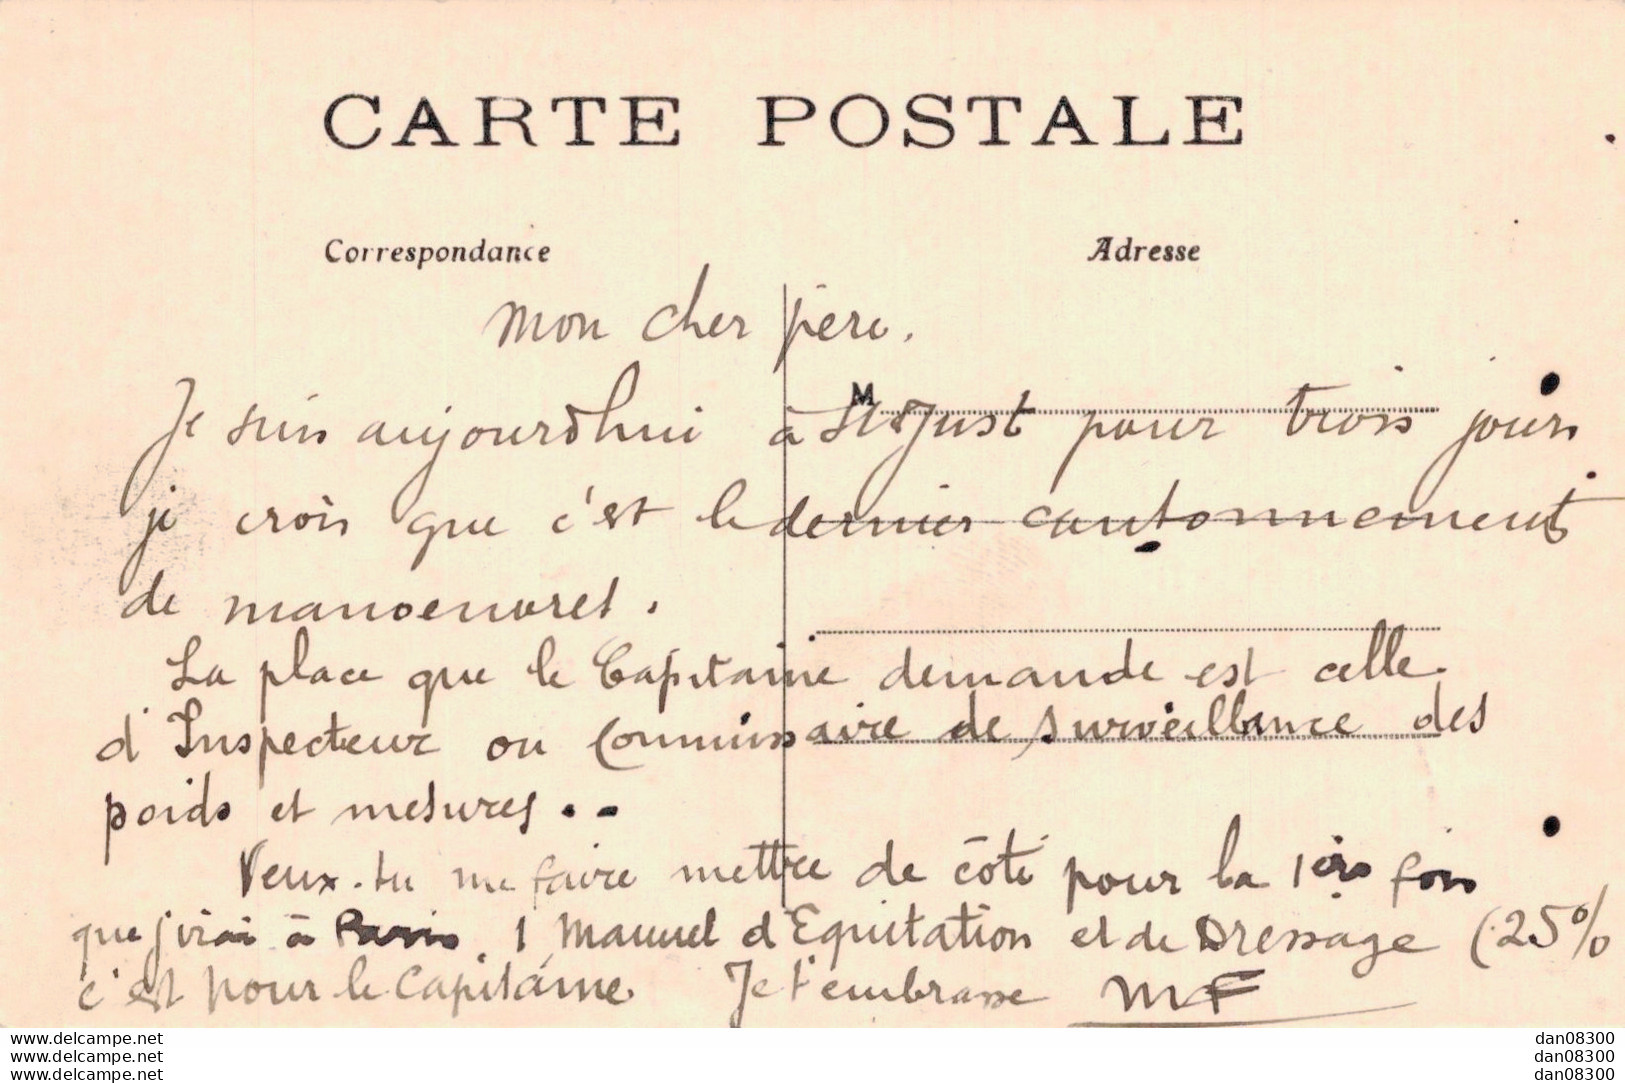 CARTE POSTALE
Correspondance
Adresse
M
Mon cher père.
Je suis aujourdhui à St Just pour trois jours
je crois que c'est le dernier cantonnement
de manoeuvres.
La place que le Capitaine demande est celle
d'Inspecteur ou Commissaire de surveillance des
poids et mesures..
Veux-tu me faire mettre de côté pour la 1ère fois
que j'irai à Paris 1 Manuel d'Equitation et de Dressage (25%
c'est pour le Capitaine Je t'embrasse MF
www.delcampe.net
www.delcampe.net
www.delcampe.net
dan08300
dan08300
dan08300